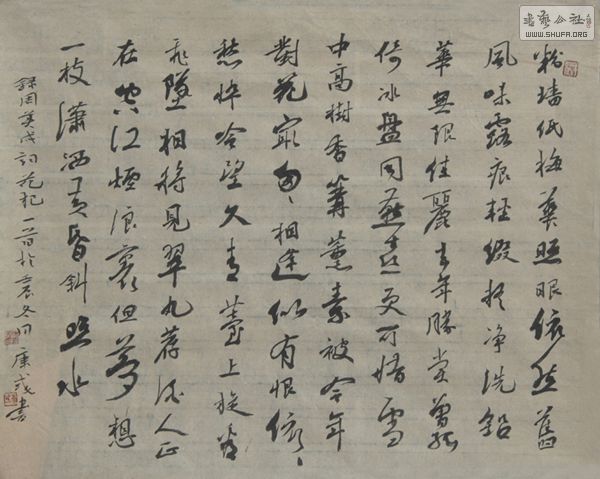 粉墙低梅華照眼依然舊
風味露痕輕綴疑净洗鉛
華無限佳麗去年勝賞曾孤
倚冰盤同燕喜更可惜雪
中高樹香篝薰素被今年
對花最匆、相逢似有恨依、
愁悴吟望久青苔上旋看
飛墜相將見翠丸荐酒人正
在空江煙浪裏但夢想
一枝瀟洒黄昏斜照水
錄周美成詞花犯一首於冬書
書藝公社
WWW.SHUFA.ORG